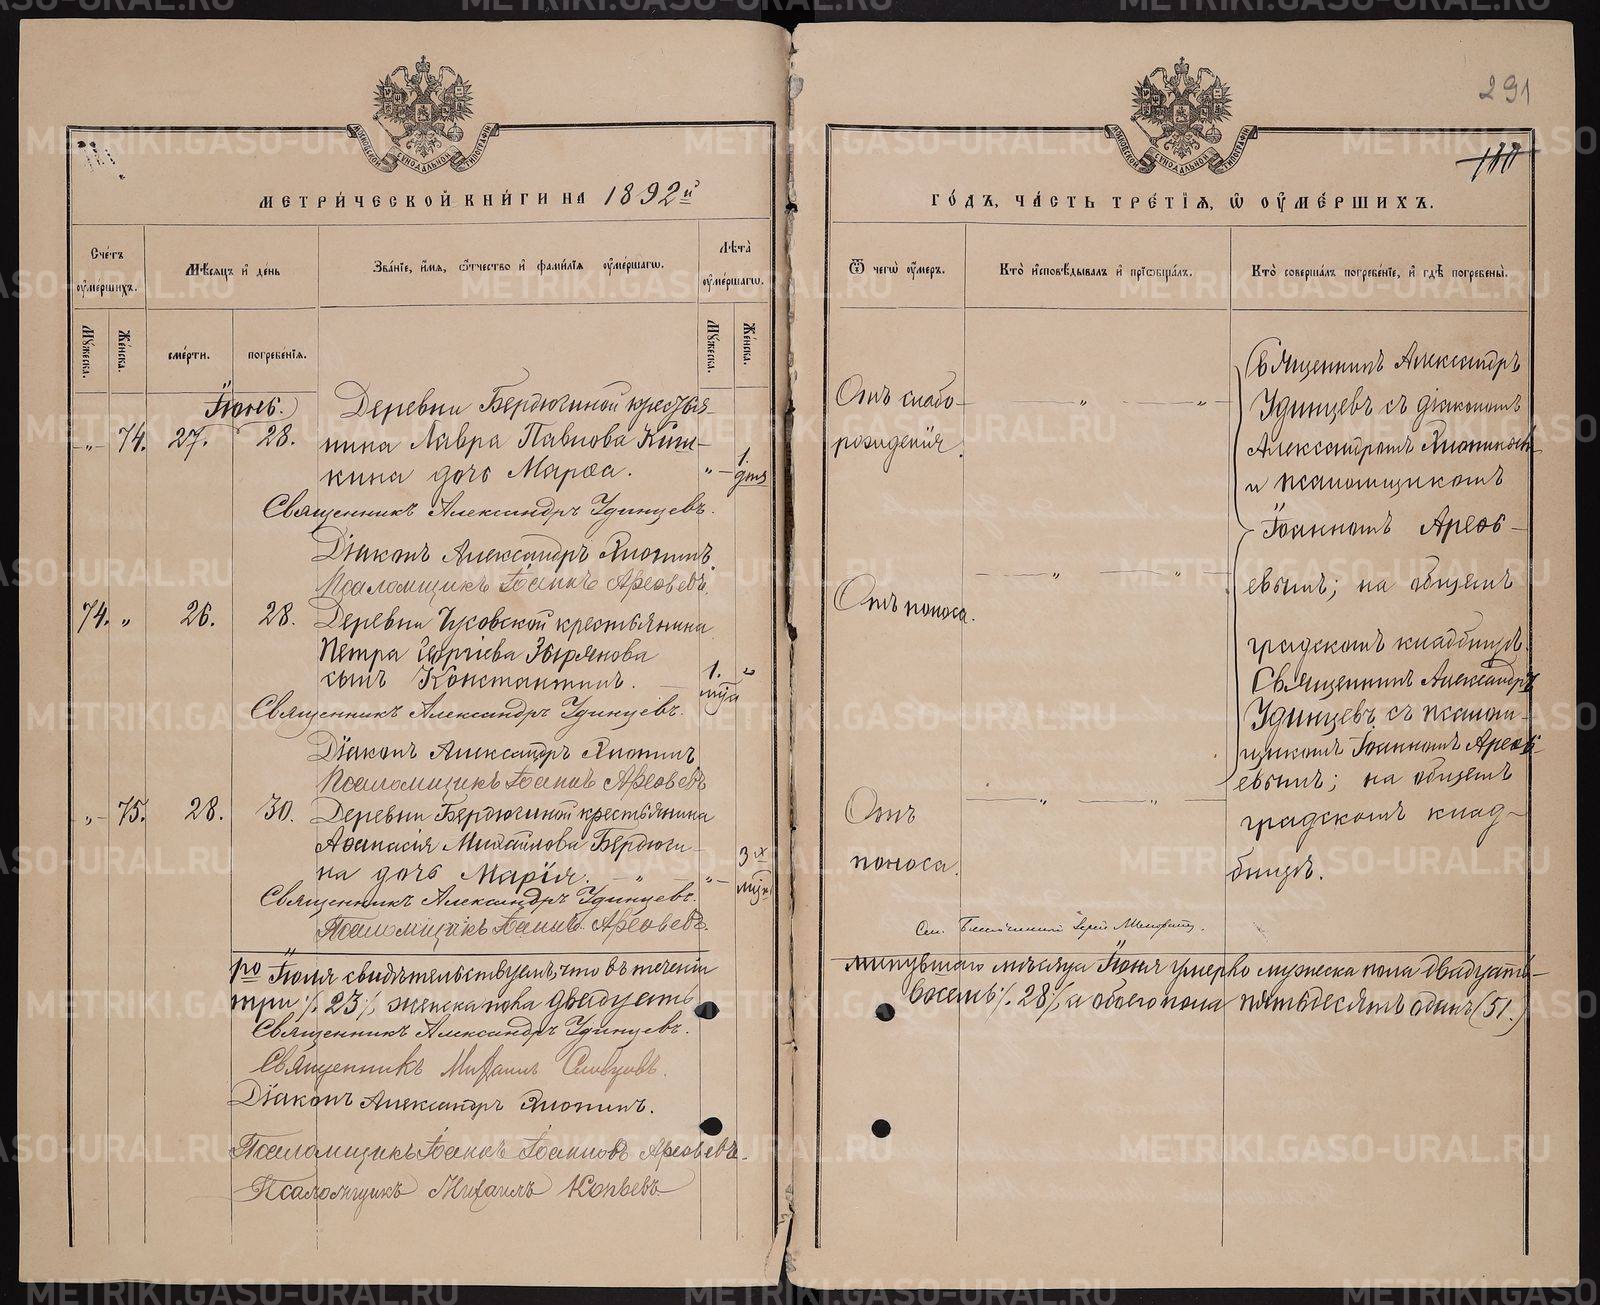 291
МЕТРИ́ЧЕСКОЙ КНИ́ГИ НА 1892й
Сче́тъ ᲂу҆ме́ршихъ.
Мѣ́сяцъ и҆ де́нь
Зва́нїе, и҆́мѧ, ѻ҆́тчество и҆ фами́лїѧ ᲂу҆ме́ршагѡ.
Лѣ́та ᲂу҆ме́ршагѡ.
Мꙋ́жеска.
Же́нска.
сме́рти.
погребе́нїѧ.
Мꙋ́жеска.
Же́нска.
Іюнь.
„ 74. 27. 28. Деревни Бердюгиной крестья-
нина Лавра Павлова Киш-
кина дочь Марѳа. „ 1. дня
Священникъ Александръ Удинцевъ.
Діаконъ Александръ
Псаломщикъ Іоаннъ Арефьевъ.
74. „ 26. 28. Деревни Чусовской крестьянина
Петра Георгіева Зырянова
сынъ Константинъ. 1. „
Священникъ Александръ Удинцевъ.
Діаконъ Александръ
Псаломщикъ Іоаннъ Арефьевъ
„ 75. 28. 30. Деревни Бердюгиной крестьянина
Аѳанасія Михайлова Бердюги-
на дочь Марія. „ „ 3х
Священникъ Александръ Удинцевъ.
Псаломщикъ Іоаннъ Арефьевъ.
Іюля свидѣтельствуемъ, что въ теченіи
три /.23/. женска пола двадцать
Священникъ Александръ Удинцевъ.
Священникъ Михаилъ Словцовъ.
Діаконъ Александръ
Псаломщикъ Іоаннъ Іоанновъ Арефьевъ.
Псаломщикъ Михаилъ Копьевъ
ГО́ДЪ, ЧА́СТЬ ТРЕ́ТЇѦ, Ѽ ОУ҆МЕ́РШИХЪ.
Ѿ чегѡ̀ ᲂу҆́меръ.
Кто̀ и҆сповѣ́дывалъ и҆ прїѡбща́лъ.
Кто̀ соверша́лъ погребе́нїе, и҆ гдѣ̀ погребены̀.
Отъ слабо-
рожденія.
„ „
Священникъ Александръ
Удинцевъ съ діакономъ
Александромъ
и псаломщикомъ
Іоанномъ Арефь-
евымъ; на общемъ
градскомъ кладбищѣ.
Отъ поноса.
„ „
Священникъ Александръ
Удинцевъ съ псалом-
щикомъ Іоанномъ Арефь-
евымъ; на общемъ
градскомъ клад-
бищѣ.
Отъ
поноса.
„ „
Благочинный Іерей
минувшаго мѣсяца Іюня умерло мужеска пола двадцать
восемь /.28/. а обоего пола пятьдесятъ одинъ (51.)